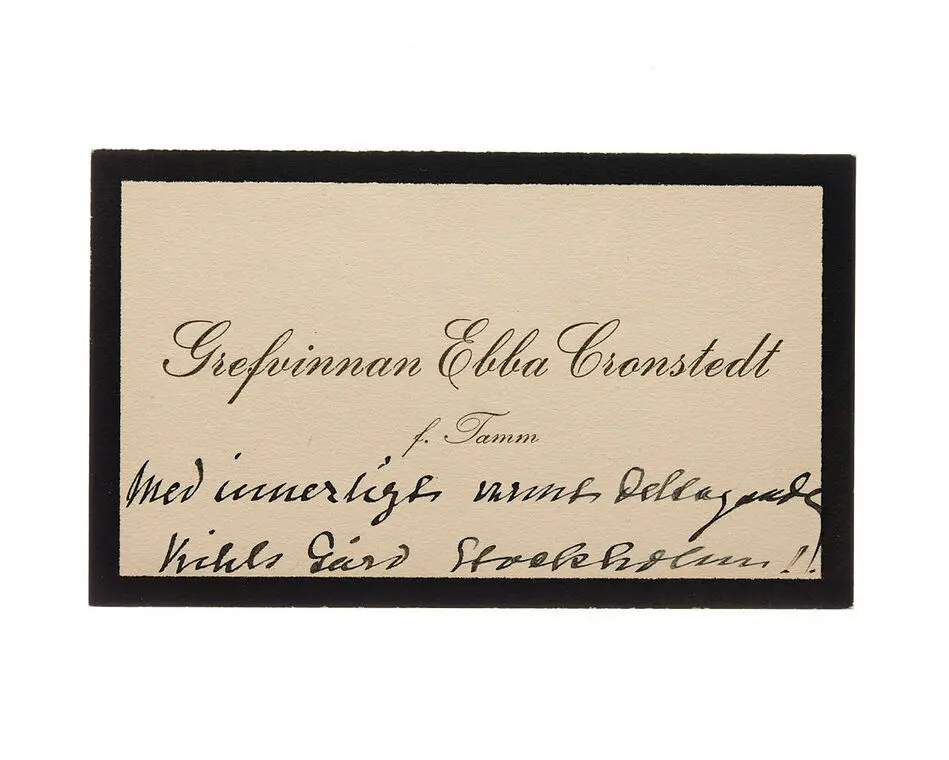 Grefvinnan Ebba Cronstedt
f. Tamm
Med innerligt varmt deltagande
Gård Stockholm !!